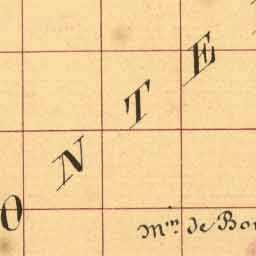 ONTE
Mⁱⁿ de Bon